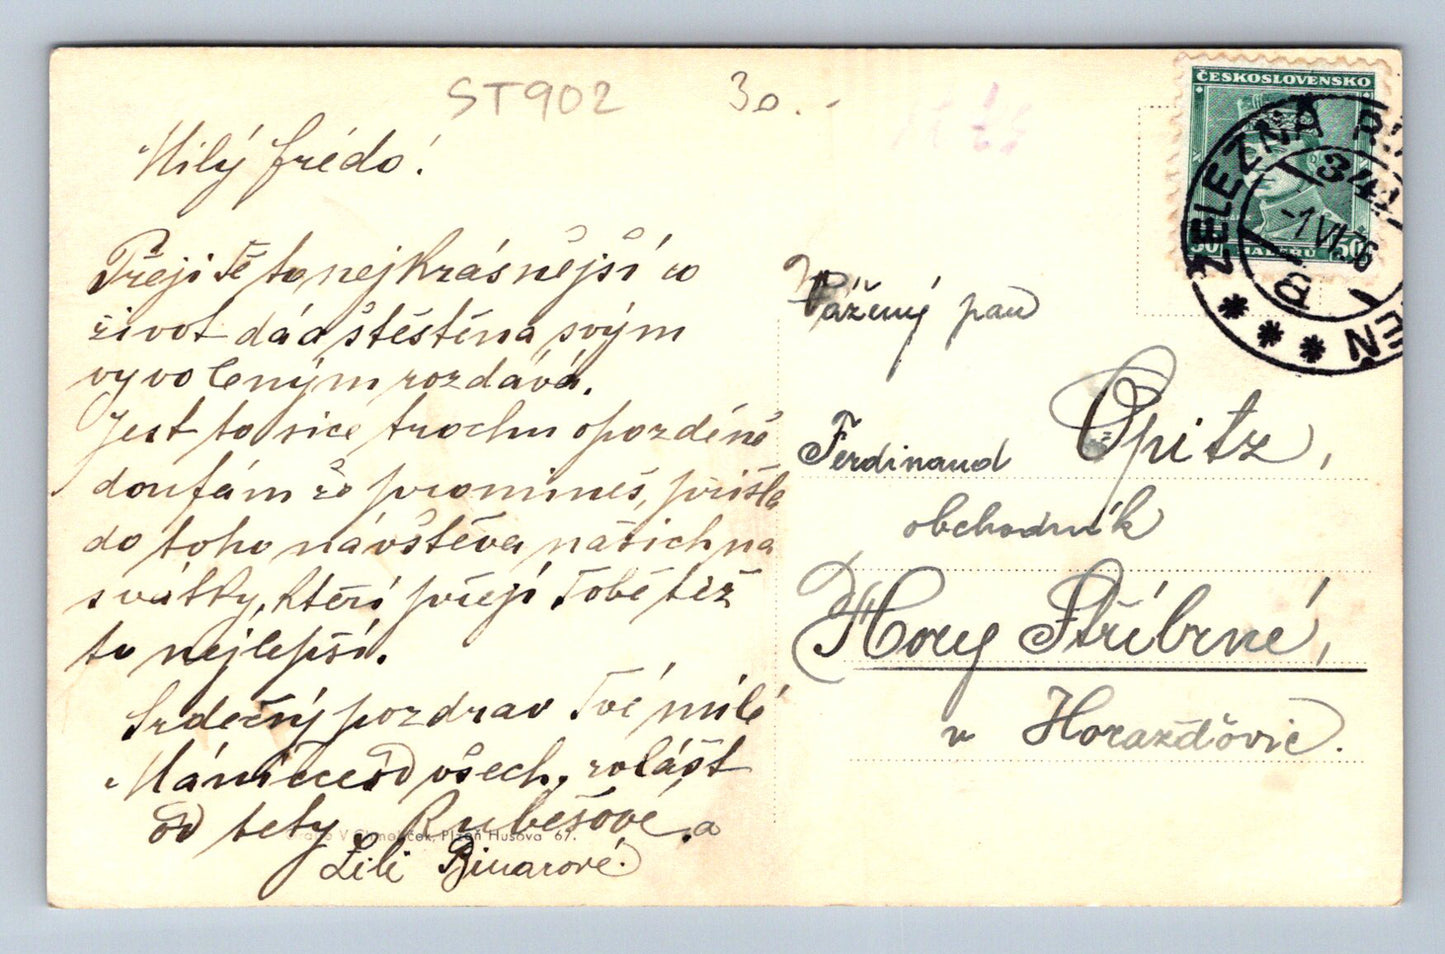 ST902 30.-
Milý frédo!
Přeji Tě to nejkrásnější co
život dá a štěstěna svým
vyvoleným rozdává.
Jest to sice trochu opozděně
doufám že promineš, přišla
do toho návštěva našich na
svátky, kteří přejí Tobě též
to nejlepší.
Srdečný pozdrav Tvé milé
Mánince od všech, zvlášt
od tety Rubešové a
Lili Binarové.
Plzeň Husova 67.
ČESKOSLOVENSKO
50 50
ŽELEZNÁ
34
-1.VI.36
8
Vážený pan
Ferdinand Opitz,
obchodník
Hory Stříbrné,
u Horažďovic.